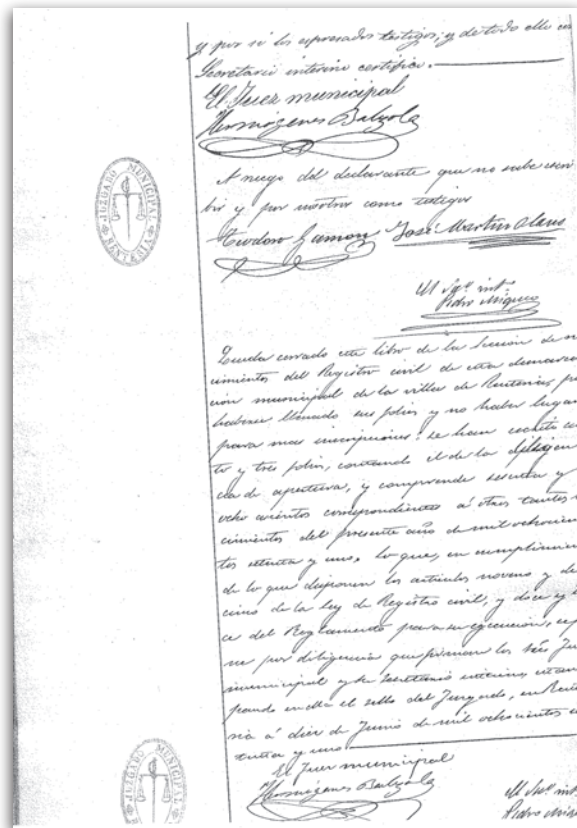 y por si los expresados testigos; y de todo ello
Secretario interino certifico.
El Juez municipal
Hermógenes Balzola
A ruego del declarante que no sabe escri
bir y por nosotros como testigos
Teodoro Gamon José Martin Olano
JUZGADO MUNICIPAL
RENTERIA
El Srio int.
Pedro Miguel
Queda cerrado este libro de la Seccion de na
cimientos del Registro civil de esta demarca
cion municipal de la villa de Renteria, po
haberse llenado sus folios y no haber lugar
para mas inscripciones: se han escrito
to y tres folios, contando el de la diligen
cia de apertura, y comprende sesenta y
ocho asientos correspondientes á otros tantos
cimientos del presente año de mil ochocien
tos setenta y uno. Lo que, en cumplimien
de lo que disponen los articulos noveno y de
cimo de la Ley de Registro civil, y doce y
ce del Reglamento para su egecucion, se po
ne por diligencia que firman los Sres Jue
municipal y de Secretario interino estam
pando en ella el sello del Juzgado, en Rente
ria á diez de Junio de mil ochocientos
tenta y uno
El Juez municipal
Hermógenes Balzola
El Srio int
Pedro Mig
JUZGADO MUNICIPAL